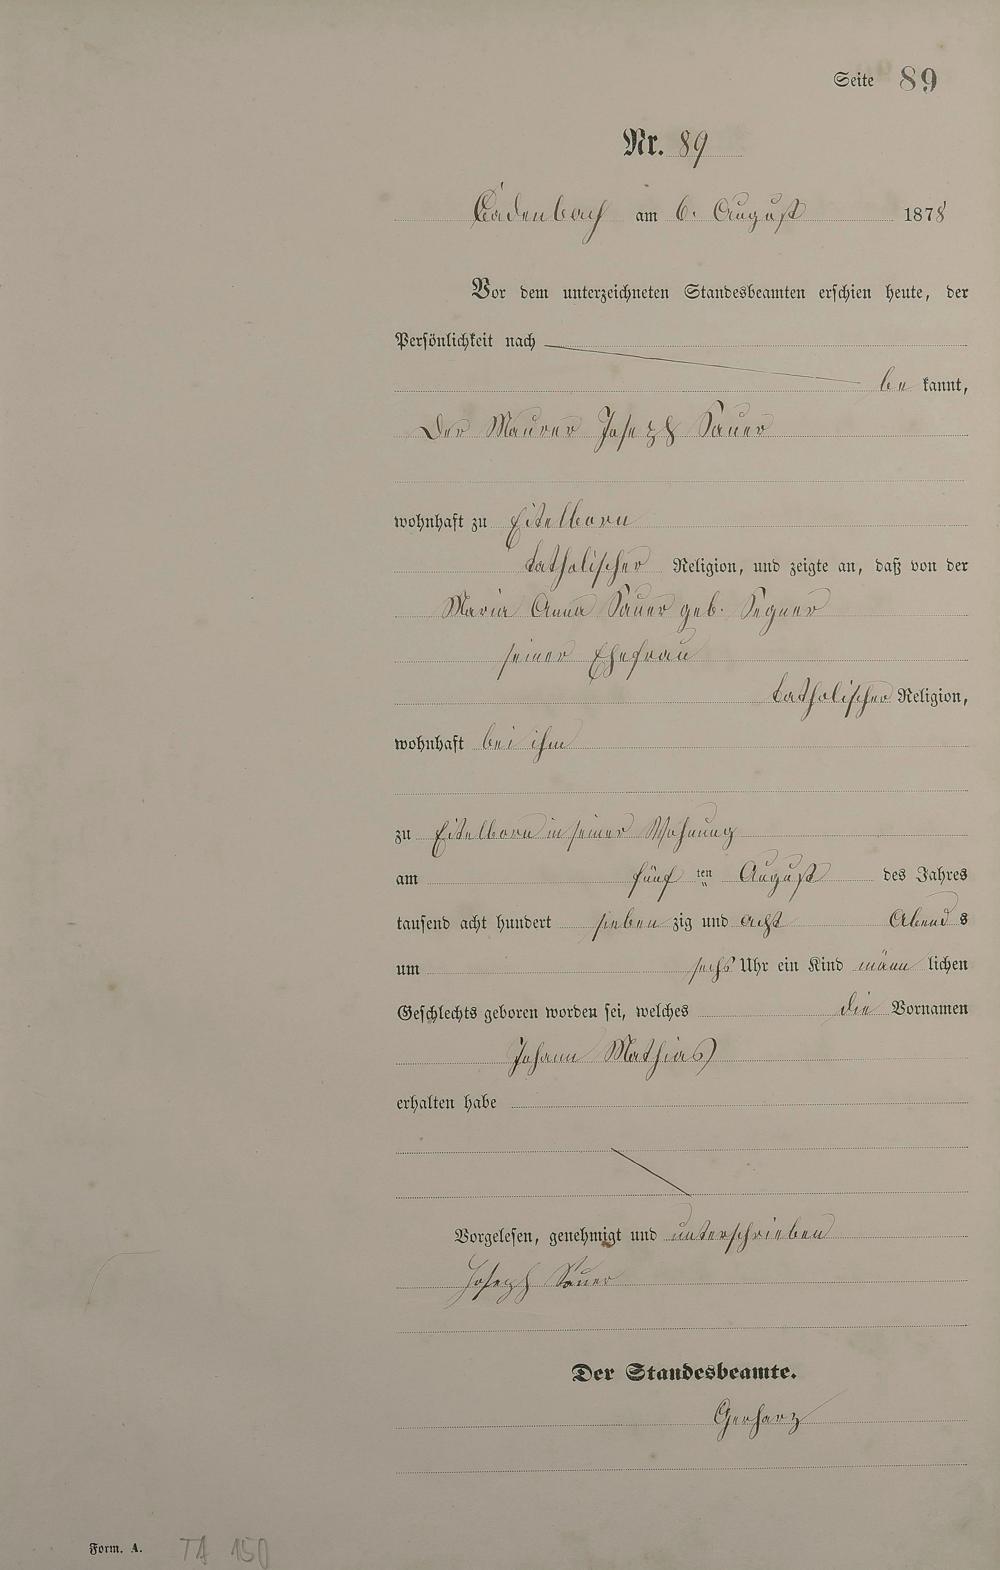 Seite 89
Nr. 89
Cadenbach am 6. August 1878
Vor dem unterzeichneten Standesbeamten erschien heute, der
Persönlichkeit nach
be kannt,
Der Maurer Joseph Sauer
wohnhaft zu Eitelborn
katholischer Religion, und zeigte an, daß von der
Maria Anna Sauer geb. Segner
seiner Ehefrau
katholischer Religion,
wohnhaft bei ihm
zu Eitelborn in seiner Wohnung
am fünf ten August des Jahres
tausend acht hundert sieben zig und acht Abend s
um sechs Uhr ein Kind männ lichen
Geschlechts geboren worden sei, welches die Vornamen
Johann Mathias
erhalten habe
Vorgelesen, genehmigt und unterschrieben
Joseph Sauer
Der Standesbeamte.
Gerharz
Form. A. TA 150